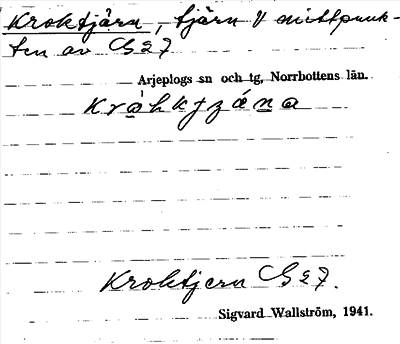 Kroktjärn, tjärn V mittpunk-
ten av G27
Arjeplogs sn och tg, Norrbottens län.
Kroktjern G27.
Sigvard Wallström, 1941.